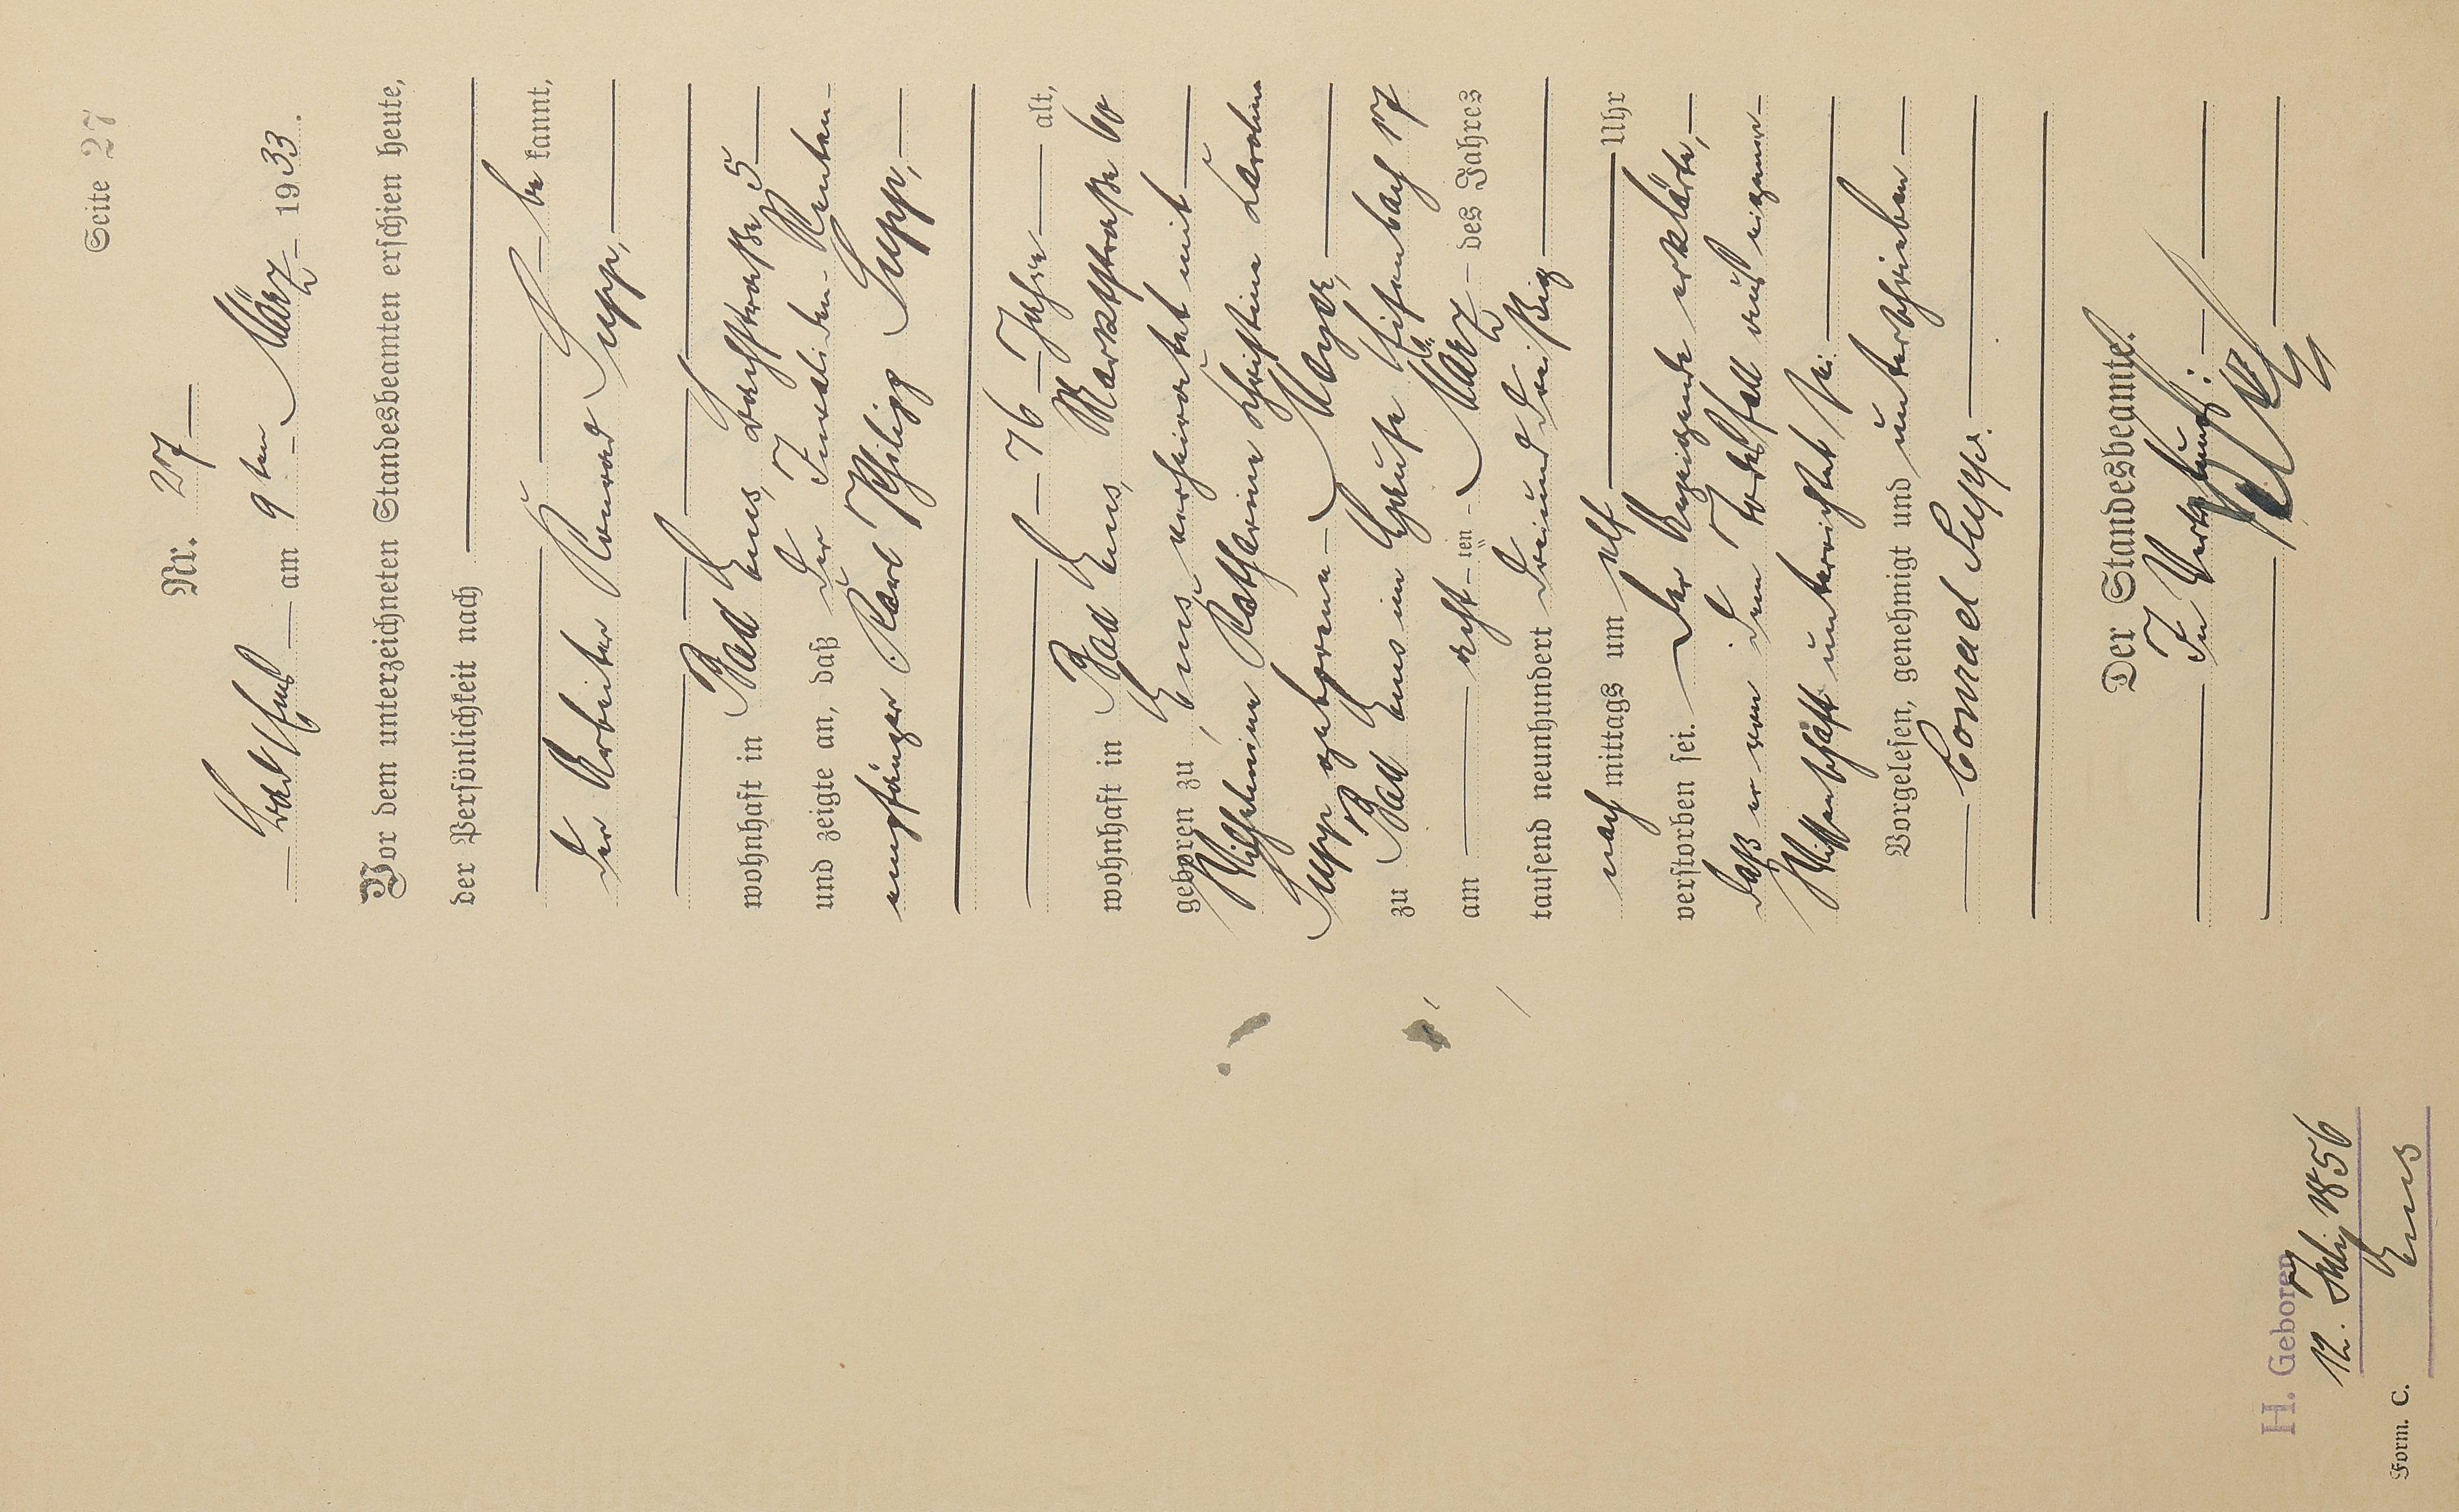 Seite 27
Nr. 27
Bad Ems am 9ten März 1933.
Vor dem unterzeichneten Standesbeamten erschien heute,
der Persönlichkeit nach
be kannt,
der Arbeiter Konrad Supp,
wohnhaft in Bad Ems, Bachstraße 5
und zeigte an, daß der Invaliden-Renten-
empfänger Karl Philipp Supp,
76 Jahre alt,
wohnhaft in Bad Ems, Marktstraße 60
geboren zu Ems, verheiratet mit
Wilhelmine Katharine Christine Karoline
Supp geborene
zu Bad Ems im Hause 17
am acht ten März des Jahres
tausend neunhundert dreiunddreißig
nach mittags um elf Uhr
verstorben sei. Der Anzeigende erklärte,
daß er von dem Todesfall aus eigener
Wissenschaft unterrichtet sei.
Vorgelesen, genehmigt und unterschrieben
Conrad Supp.
Der Standesbeamte.
In Vertretung:
H. Geboren
12. Juli 1856
Ems
Form. C.